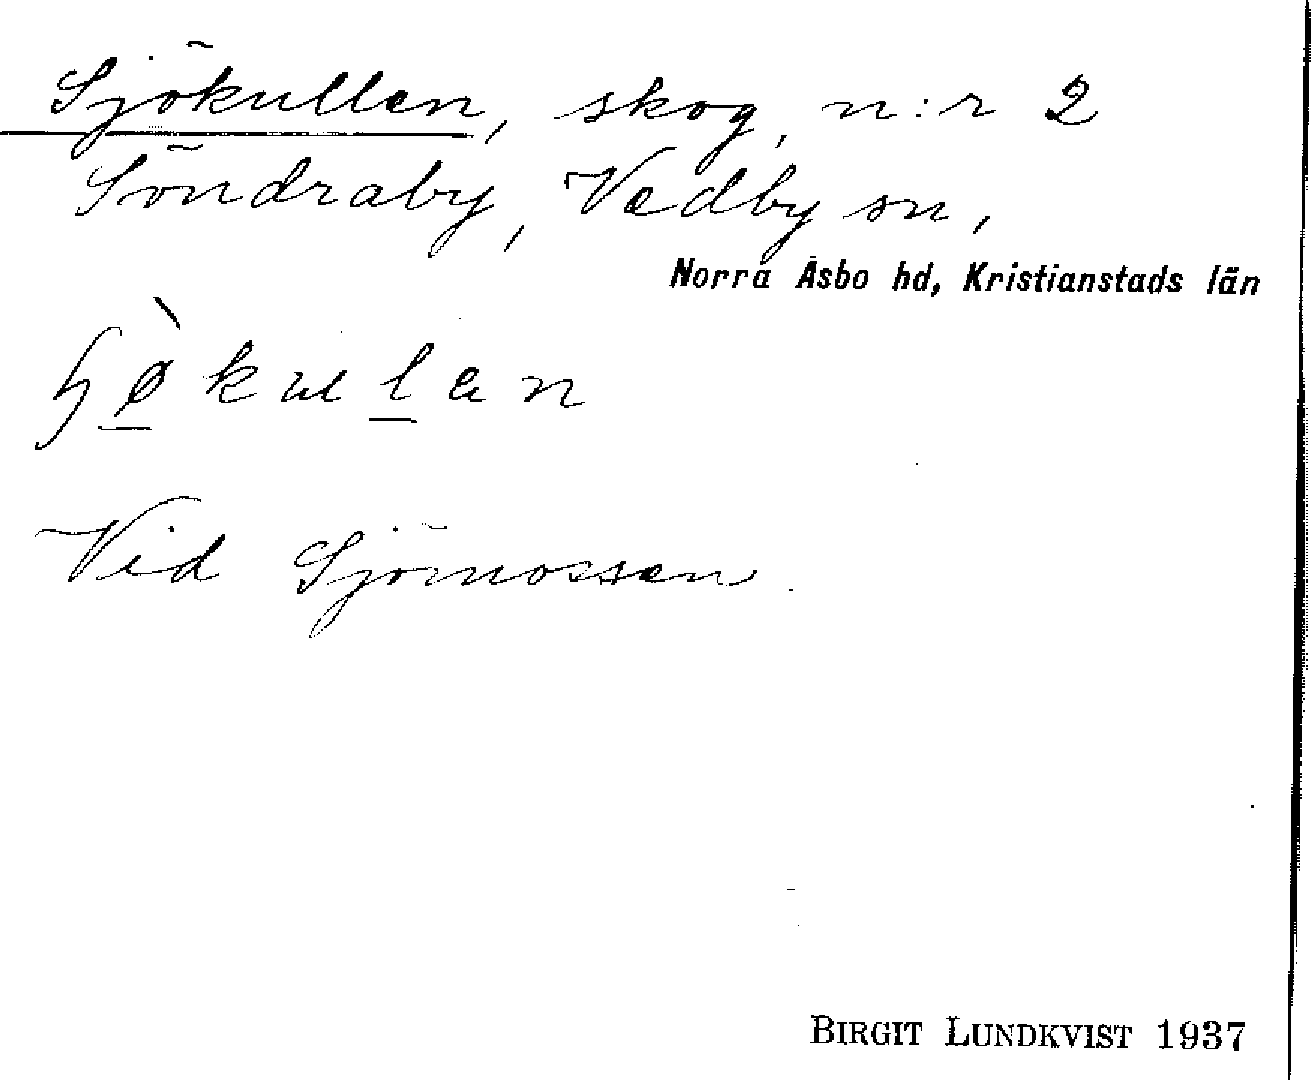 Sjökullen, skog, n:r 2
Söndraby, Vedby sn,
Norra Åsbo hd, Kristianstads län
Vid Sjömossen.
BIRGIT LUNDKVIST 1937